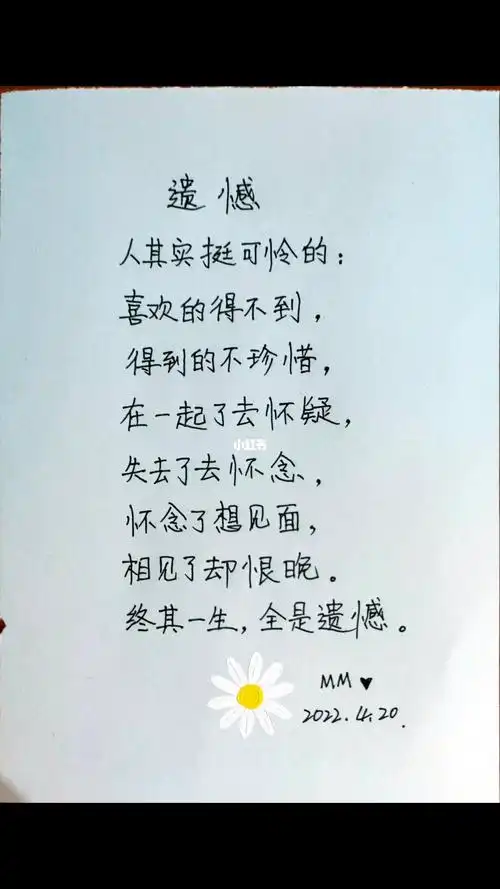 遗憾
人其实挺可怜的：
喜欢的得不到，
得到的不珍惜，
在一起了去怀疑，
小红书
失去了去怀念，
怀念了想见面，
相见了却恨晚。
终其一生，全是遗憾。
MM♥
2022.4.20.